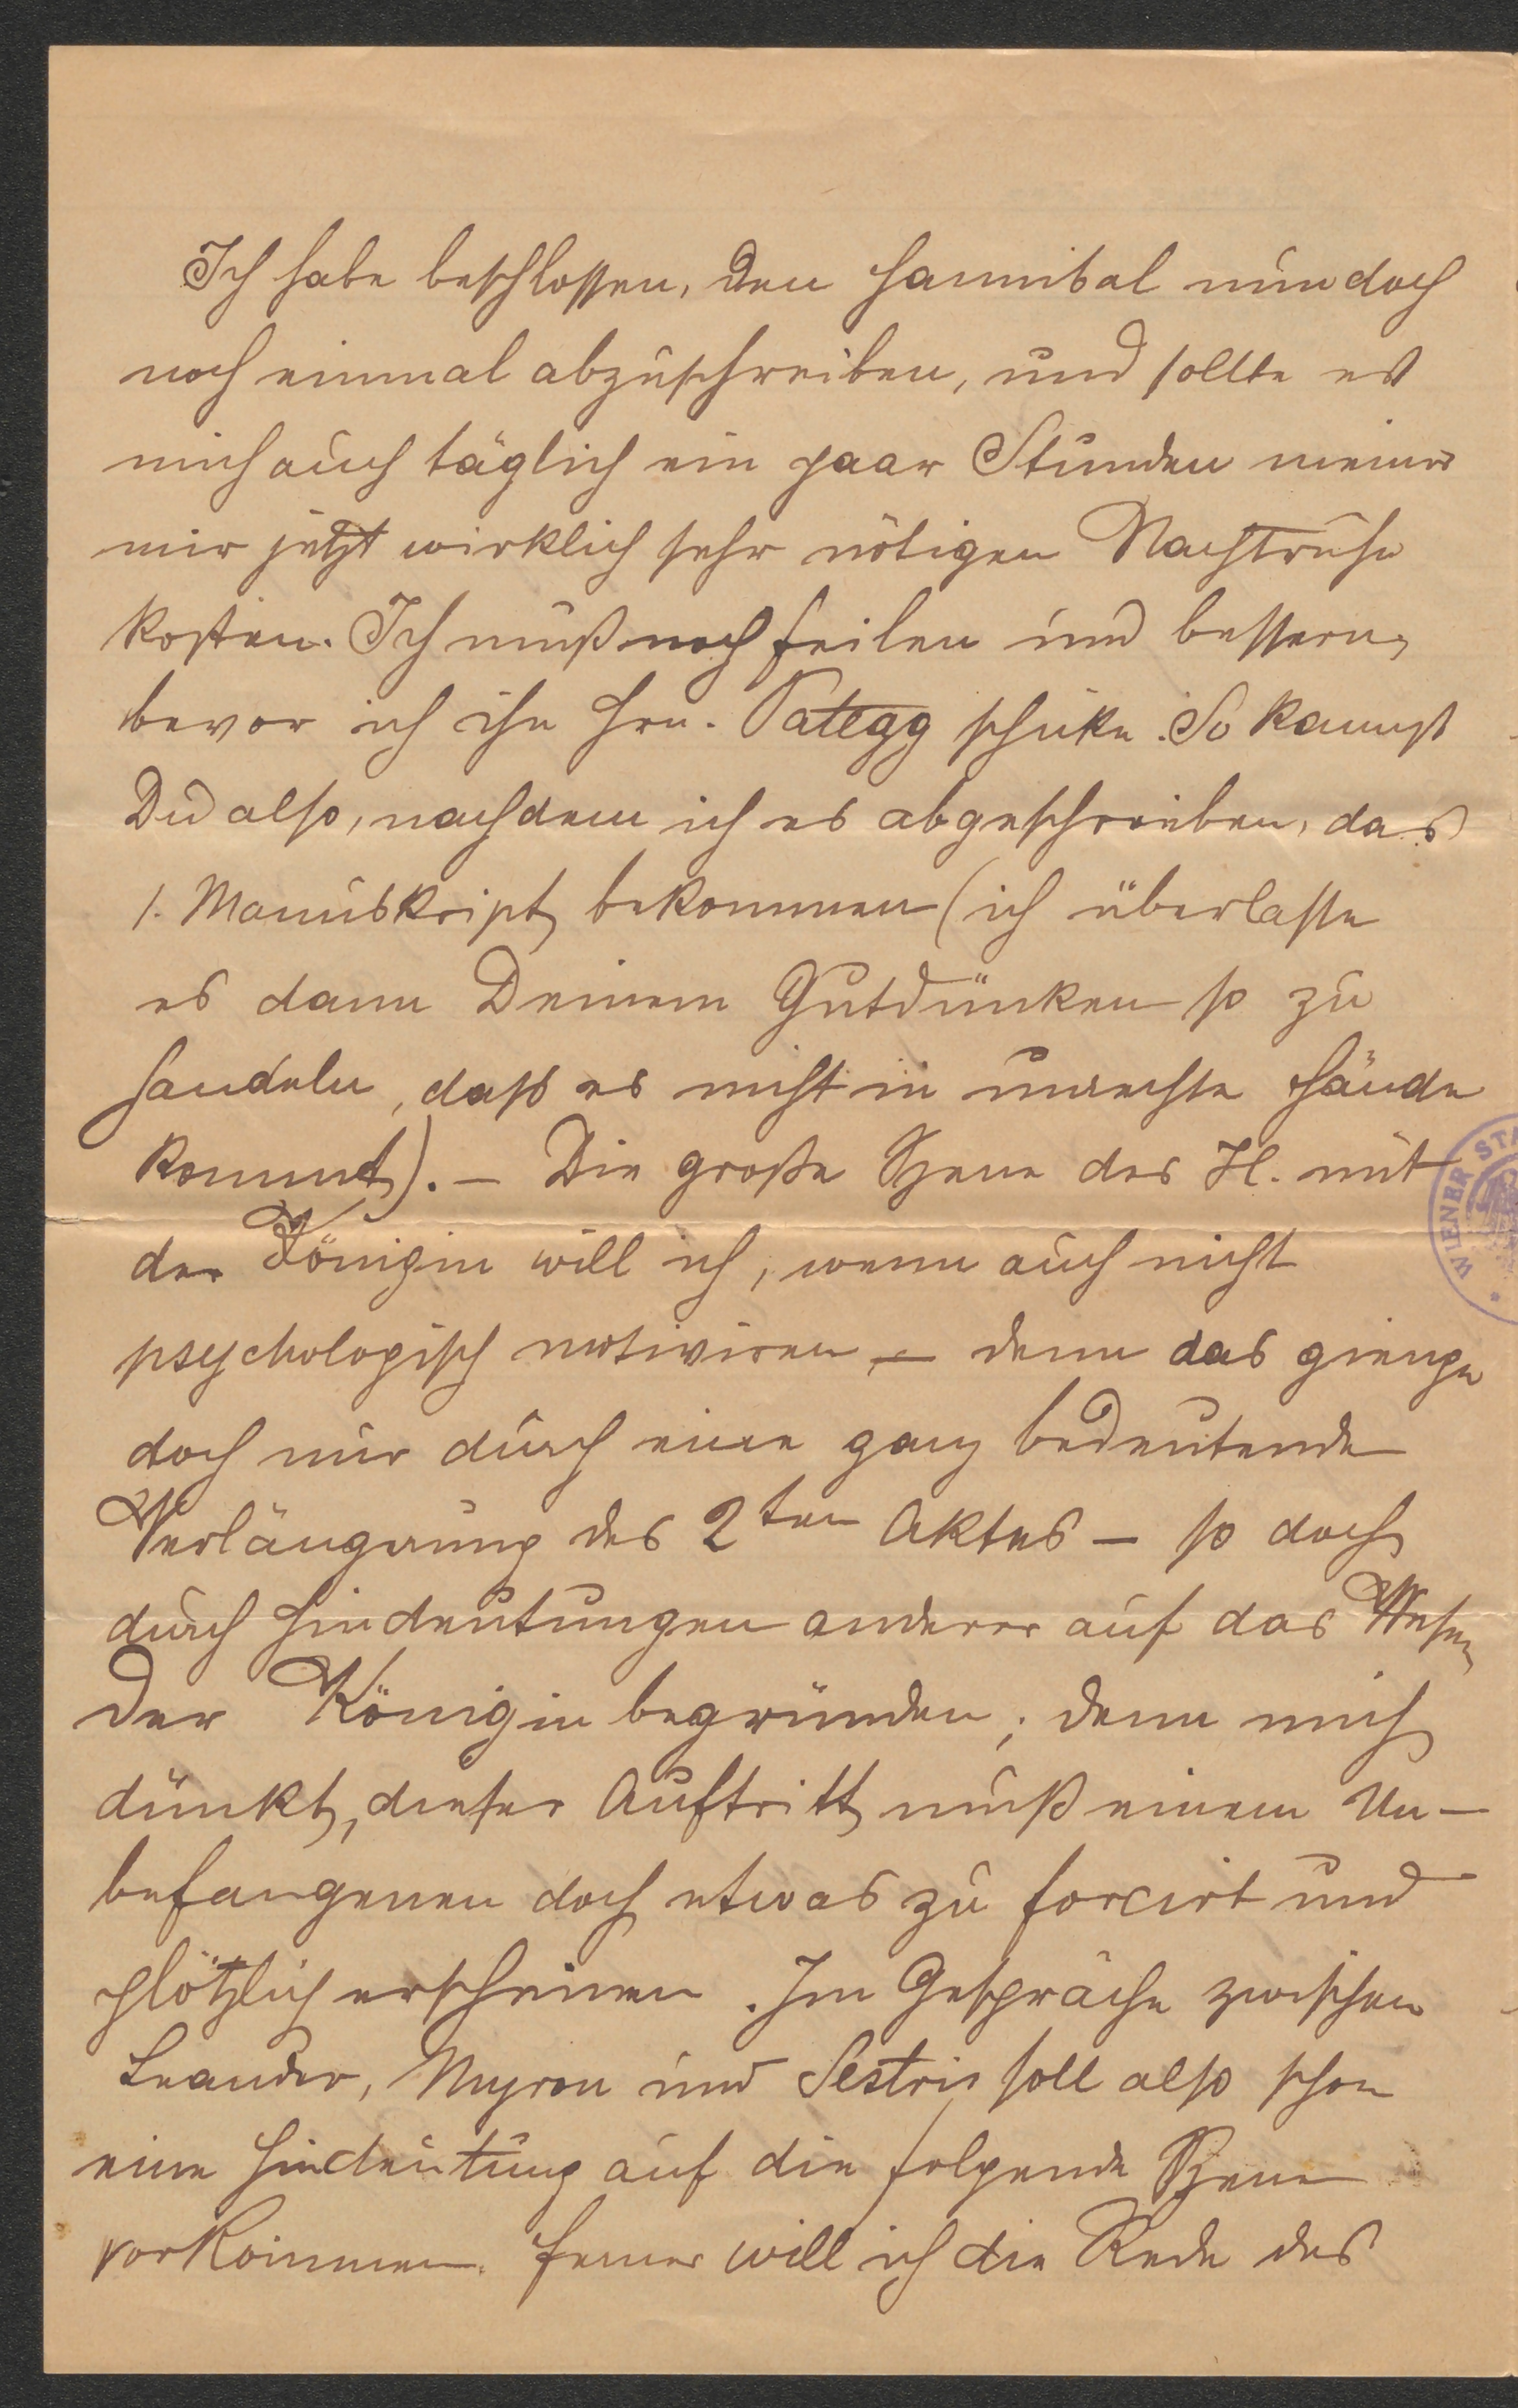 Ich habe beschlossen, den Hannibal nun doch
noch einmal abzuschreiben, und sollte es
mich auch täglich ein paar Stunden meiner
mir jetzt wirklich sehr nötigen Nachtruhe
kosten. Ich muß noch feilen und bessern,
bevor ich ihn Hrn. Pategg schicke. So kannst
Du also, nachdem ich es abgeschrieben, das
1. Manuskript bekommen (ich überlasse
es dann Deinem Gutdünken so zu
handeln, daß es nicht in unrechte Hände
kommt). – Die große Szene des H. mit
der Königin will ich, wenn auch nicht
psychologisch motiviren – denn das gienge
doch nur durch eine ganz bedeutende
Verlängerung des 2ten Aktes – so doch
durch Hindeutungen anderer auf das Wesen
der Königin begründen; denn mich
dünkt, dieser Auftritt muß einem Un-
befangenen doch etwas zu forcirt und
plötzlich erscheinen. Im Gespräche zwischen
Leander, Myron und Sestris soll also schon
eine Hindeutung auf die folgende Szene
vorkommen. Ferner will ich die Rede des
WIENER STA